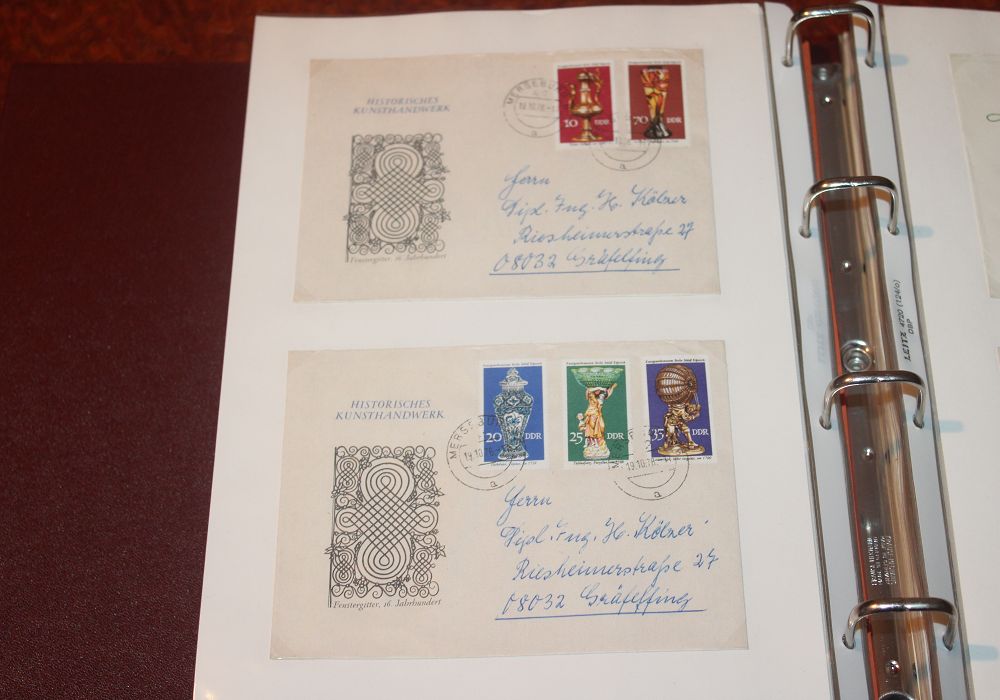 HISTORISCHES
KUNSTHANDWERK
Fenstergitter, 16. Jahrhundert
10 DDR
70 DDR
19.10.76
a
a
Herrn
Dipl. Ing. H. Kölzer
Riesheimerstraße 27
08032 Gräfelfing
HISTORISCHES
KUNSTHANDWERK
Fenstergitter, 16. Jahrhundert
20 DDR
25 DDR
35 DDR
19.10.76
19.10.76
a
a
Herrn
Dipl. Ing. H. Kölzer
Riesheimerstraße 27
08032 Gräfelfing
LEITZ 4720 (124/6)
DBP